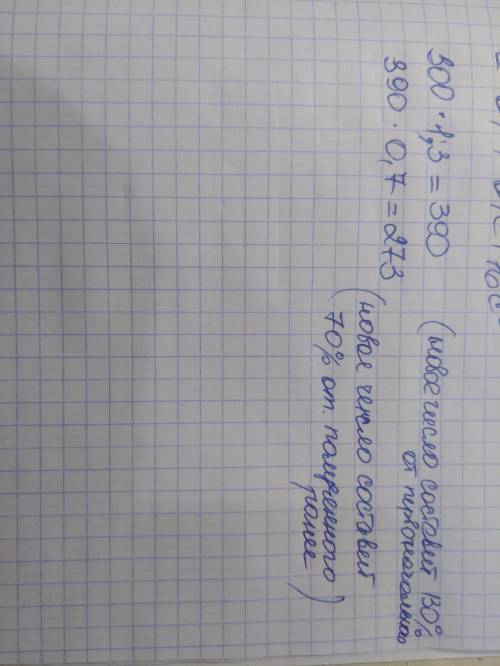 300 · 1,3 = 390 (новое число составит 130%
от первоначального
390 · 0,7 = 273 (новое число составит
70% от полученного
ранее)